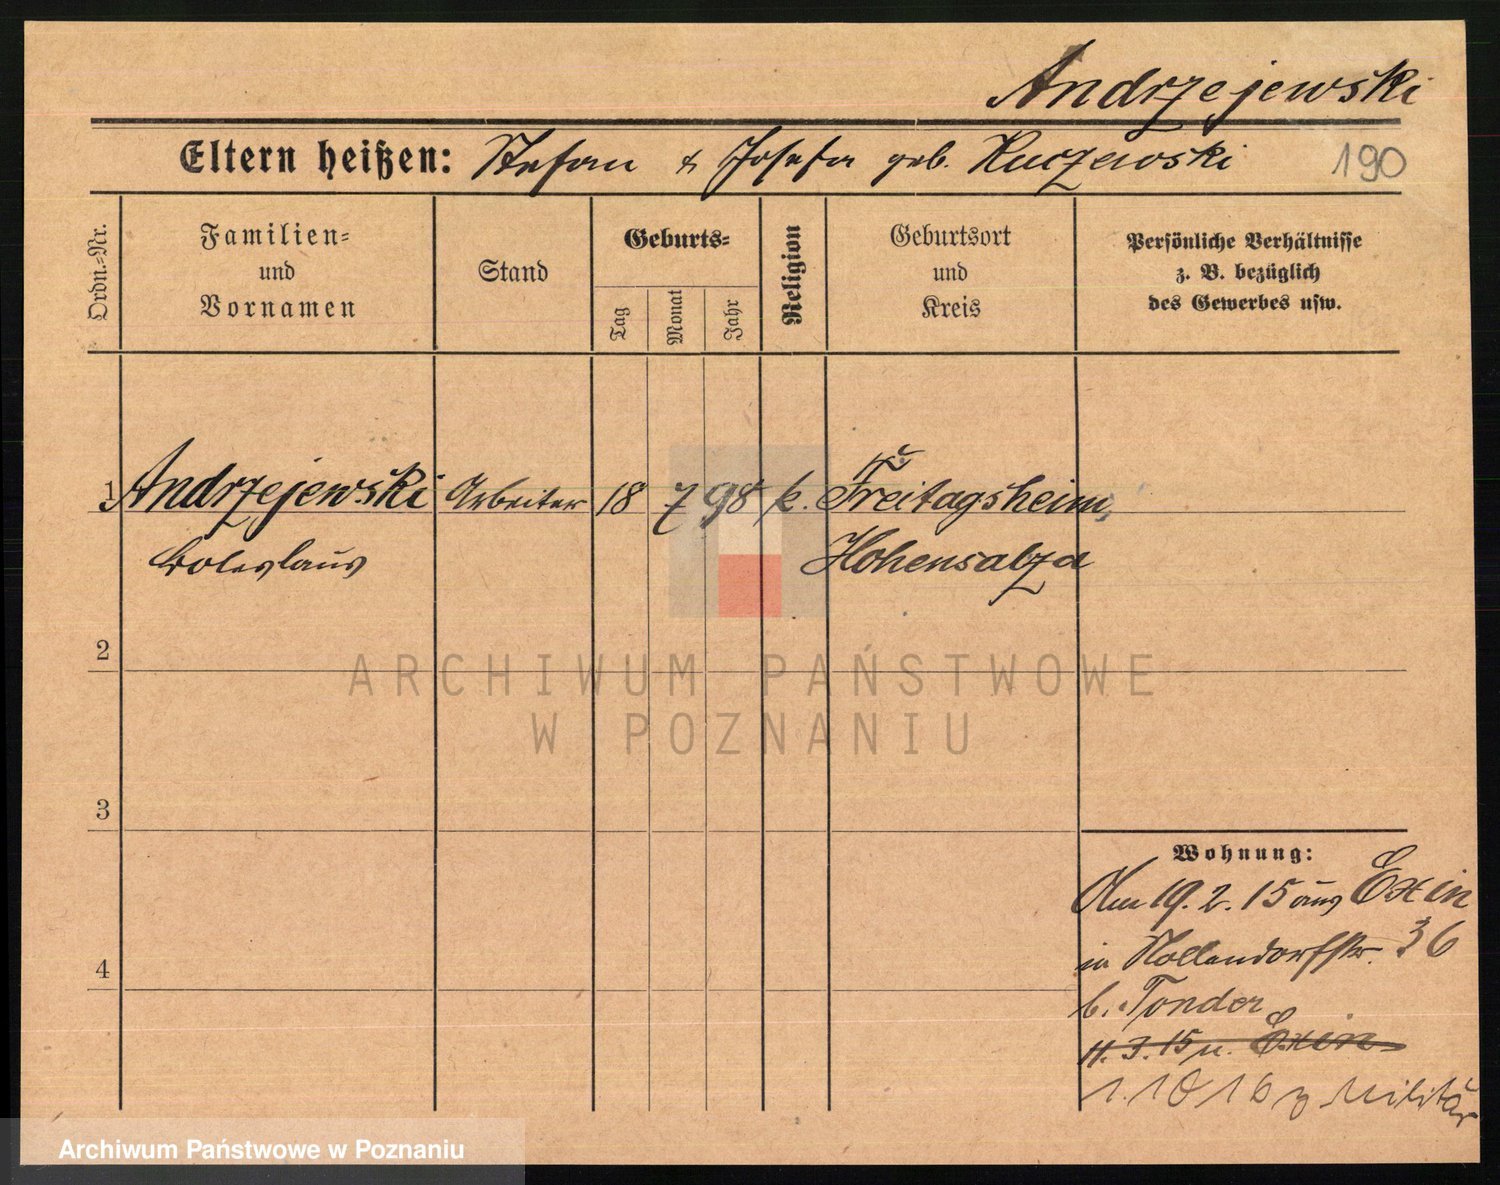 Andrzejewski
Eltern heißen: Stefan & Josefa geb. Kuczewski
190
Ordn.-Nr.
Familien-
und
Vornamen
Stand
Geburts-
Tag
Monat
Jahr
Religion
Geburtsort
und
Kreis
Persönliche Verhältnisse
z. B. bezüglich
des Gewerbes usw.
1 Andrzejewski Arbeiter 18 7 98 k. Freitagsheim,
Boleslaus Hohensalza
2
ARCHIWUM PAŃSTWOWE
W POZNANIU
3
Wohnung:
Am 19. 2. 15 aus Exin
in Nollendorfstr. 36
4
b. Tonder
11. 3. 15 n. Exin
1. 10 16 z Militär
Archiwum Państwowe w Poznaniu